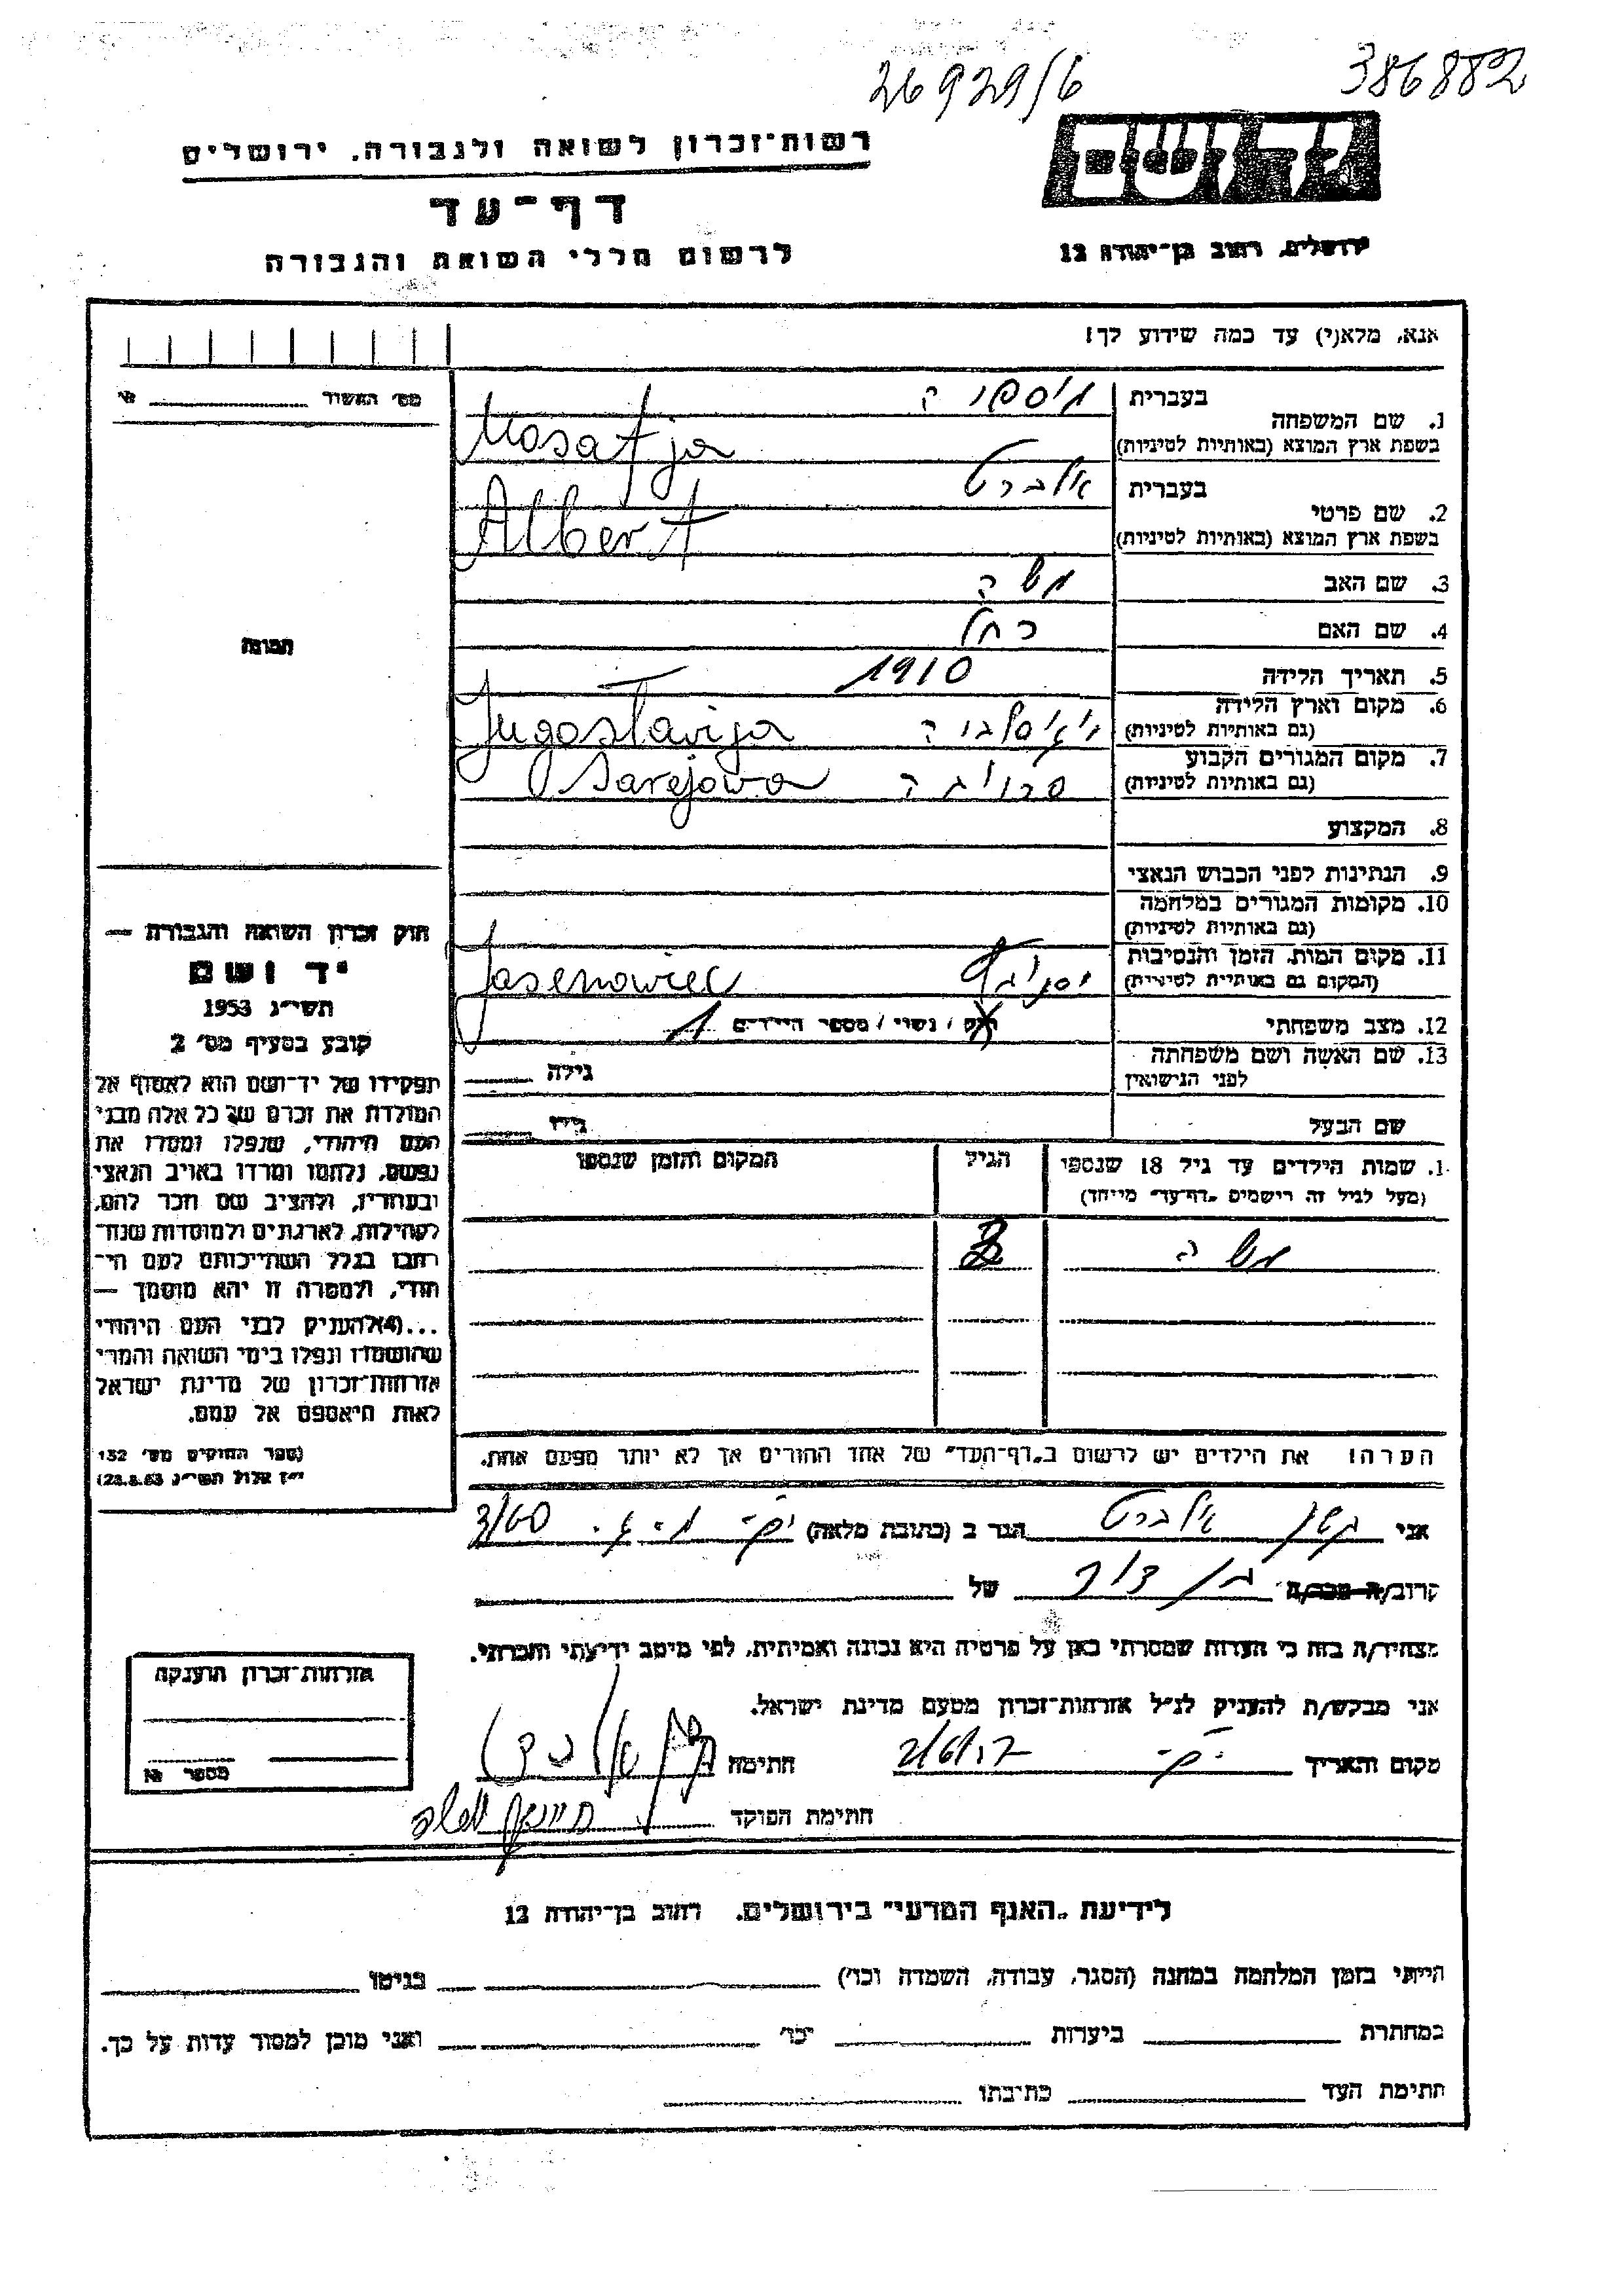 26929/6 386882
יד ושם
רשות־זכרון לשואה ולגבורה, ירושלים
דף־עד
ירושלים, רחוב בן־יהודה 12
לרשום חללי השואה והגבורה
אנא, מלא(י) עד כמה שידוע לך!
מס׳ האשור
1. שם המשפחה בעברית
בשפת ארץ המוצא (באותיות לטיניות) Mosafja
2. שם פרטי בעברית אלברט
בשפת ארץ המוצא (באותיות לטיניות) Albert
3. שם האב משה
4. שם האם רחל
תמונה
5. תאריך הלידה 1910
6. מקום וארץ הלידה
(גם באותיות לטיניות) Jugoslavija
7. מקום המגורים הקבוע
(גם באותיות לטיניות) Sarejowo
8. המקצוע
9. הנתינות לפני הכבוש הנאצי
10. מקומות המגורים במלחמה
(גם באותיות לטיניות)
11. מקום המות, הזמן והנסיבות
(המקום גם באותיות לטיניות) Jasenowiec
12. מצב משפחתי רווק / נשוי / מספר הילדים 1
13. שם האשה ושם משפחתה
לפני הנישואין גילה
שם הבעל גילו
1. שמות הילדים עד גיל 18 שנספו הגיל המקום והזמן שנספו
(מעל לגיל זה רישמים „דף־עד״ מייחד)
משה
הערה! את הילדים יש לרשום ב„דף־העד״ של אחד ההורים אך לא יותר מפעם אחת.
חוק זכרון השואה והגבורה —
יד ושם
תשי״ג 1953
קובע בסעיף מס׳ 2
תפקידו של יד־ושם הוא לאסוף אל
המולדת את זכרם של כל אלה מבני
העם היהודי, שנפלו ומסרו את
נפשם, נלחמו ומרדו באויב הנאצי
ובעוזריו, ולהציב שם וזכר להם,
לקהילות, לארגונים ולמוסדות שנח־
רבו בגלל השתייכותם לעם הי־
הודי, ולמטרה זו יהא מוסמך —
...(4) להעניק לבני העם היהודי
שהושמדו ונפלו בימי השואה והמרי
אזרחות־זכרון של מדינת ישראל
לאות היאספם אל עמם.
(ספר החוקים מס׳ 132
י״ז אלול תשי״ג 28.8.53)
אני אלברט הגר ב (כתובת מלאה) 3/60
קרוב/ה מכר/ה בן דוד של
מצהיר/ה בזה כי העדות שמסרתי כאן על פרטיה היא נכונה ואמיתית, לפי מיטב ידיעתי והכרתי.
אני מבקש/ת להעניק לנ״ל אזרחות־זכרון מטעם מדינת ישראל.
מקום ותאריך חתימה
חתימת הפוקד
אזרחות־זכרון הוענקה
מספר
לידיעת „האגף המדעי״ בירושלים, רחוב בן־יהודה 12
הייתי בזמן המלחמה במחנה (הסגר, עבודה, השמדה וכו׳) בגיטו
במחתרת ביערות וכו׳ ואני מוכן למסור עדות על כך.
חתימת העד כתיבתו